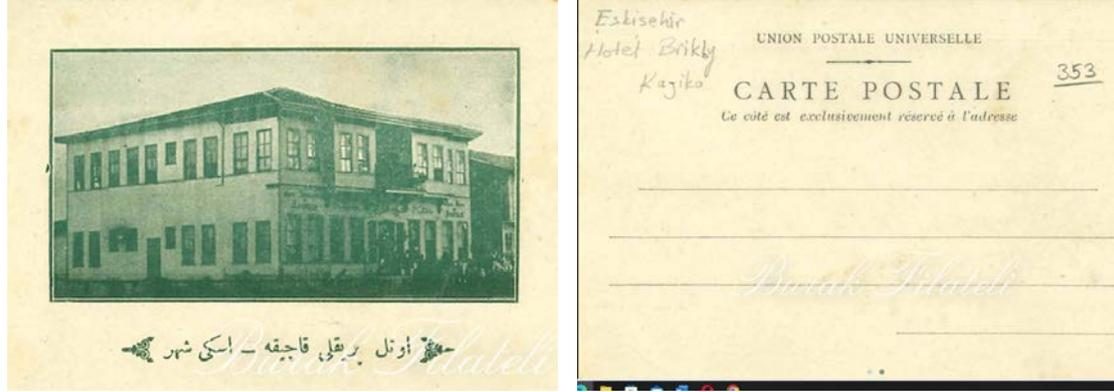 اوتل بريقلى قاجيقه ـ اسكى شهر
Burak Filateli
Eskisehir
Hotel Brikly
Kagiko
UNION POSTALE UNIVERSELLE
353
CARTE POSTALE
Ce côté est exclusivement réservé à l'adresse
Burak Filateli